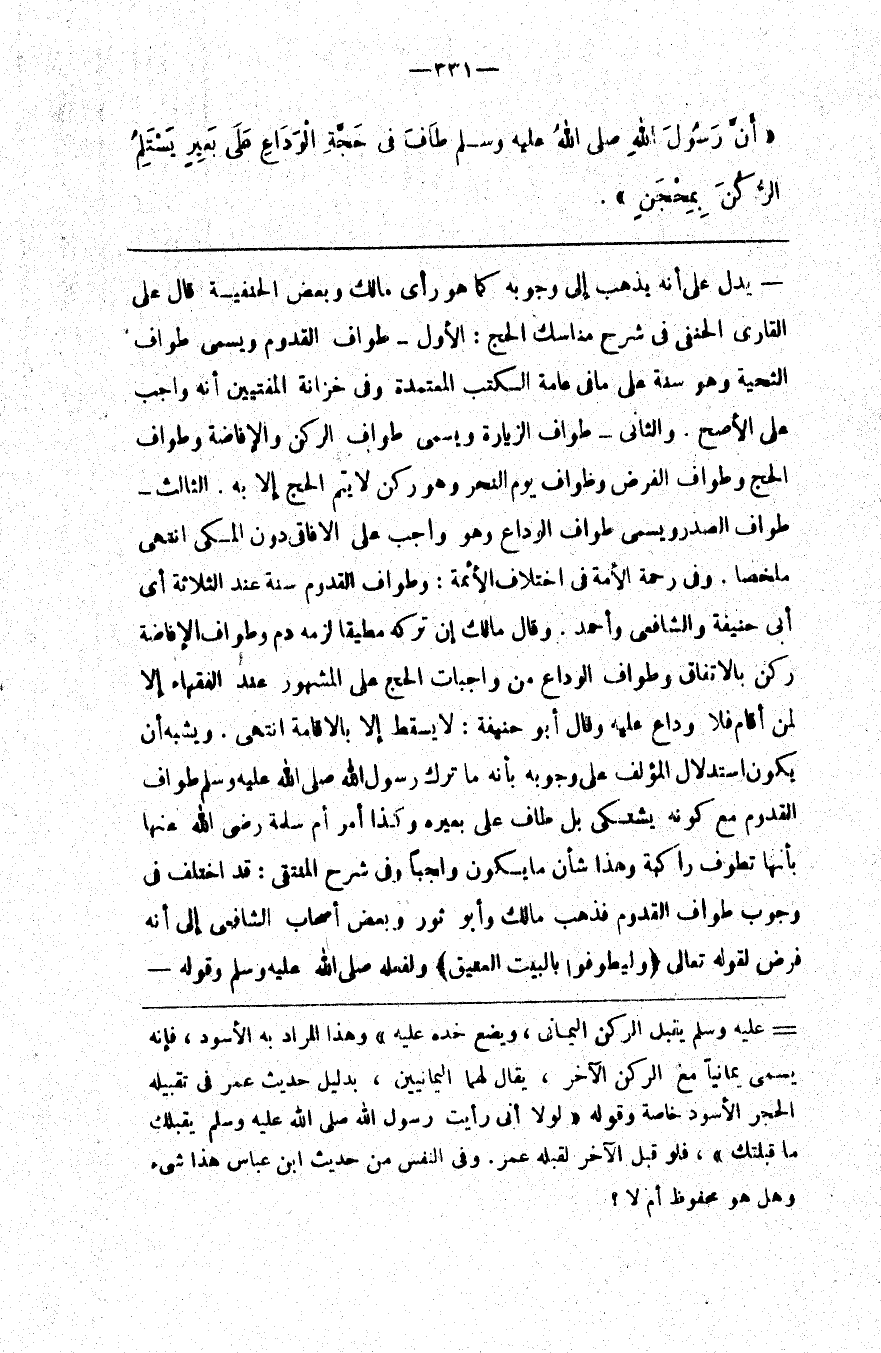 —٣٣١—
« أَنَّ رَسُولَ اللهِ صلى اللهُ عليه وسلم طَافَ فى حَجَّةِ الْوَدَاعِ عَلَى بَعِيرٍ يَسْتَلِمُ
الرُّكْنَ بِمِحْجَنٍ » .
— يدل على أنه يذهب إلى وجوبه كما هو رأى مالك وبعض الحنفية قال على
القارى الحنفى فى شرح مناسك الحج : الأول – طواف القدوم ويسمى طواف
التحية وهو سنة على مافى عامة الكتب المعتمدة وفى خزانة المفتيين أنه واجب
على الأصح . والثانى – طواف الزيارة ويسمى طواف الركن والإفاضة وطواف
الحج وطواف الفرض وطواف يوم النحر وهو ركن لا يتم الحج إلا به . الثالث –
طواف الصدر ويسمى طواف الوداع وهو واجب على الافاقى دون المكى انتهى
ملخصا . وفى رحمة الأمة فى اختلاف الأئمة : وطواف القدوم سنة عند الثلاثة أى
أبى حنيفة والشافعى وأحمد . وقال مالك إن تركه مطيقا لزمه دم وطواف الإفاضة
ركن بالاتفاق وطواف الوداع من واجبات الحج على المشهور عند الفقهاء إلا
لمن أقام فلا وداع عليه وقال أبو حنيفة : لا يسقط إلا بالاقامة انتهى . ويشبه أن
يكون استدلال المؤلف على وجوبه بأنه ما ترك رسول الله صلى الله عليه وسلم طواف
القدوم مع كونه يشتكى بل طاف على بعيره وكذا أمر أم سلمة رضى الله عنها
بأنها تطوف راكبة وهذا شأن ما يكون واجباً وفى شرح المنتقى : قد اختلف فى
وجوب طواف القدوم فذهب مالك وأبو ثور وبعض أصحاب الشافعى إلى أنه
فرض لقوله تعالى ﴿وليطوفوا بالبيت العتيق﴾ ولفعله صلى الله عليه وسلم وقوله —
= عليه وسلم يقبل الركن اليمانى ، ويضع خده عليه » وهذا المراد به الأسود ، فإنه
يسمى يمانياً مع الركن الآخر ، يقال لهما اليمانيين ، بدليل حديث عمر فى تقبيله
الحجر الأسود خاصة وقوله « لولا أنى رأيت رسول الله صلى الله عليه وسلم يقبلك
ما قبلتك » ، فلو قبل الآخر لقبله عمر . وفى النفس من حديث ابن عباس هذا شىء
وهل هو محفوظ أم لا ؟